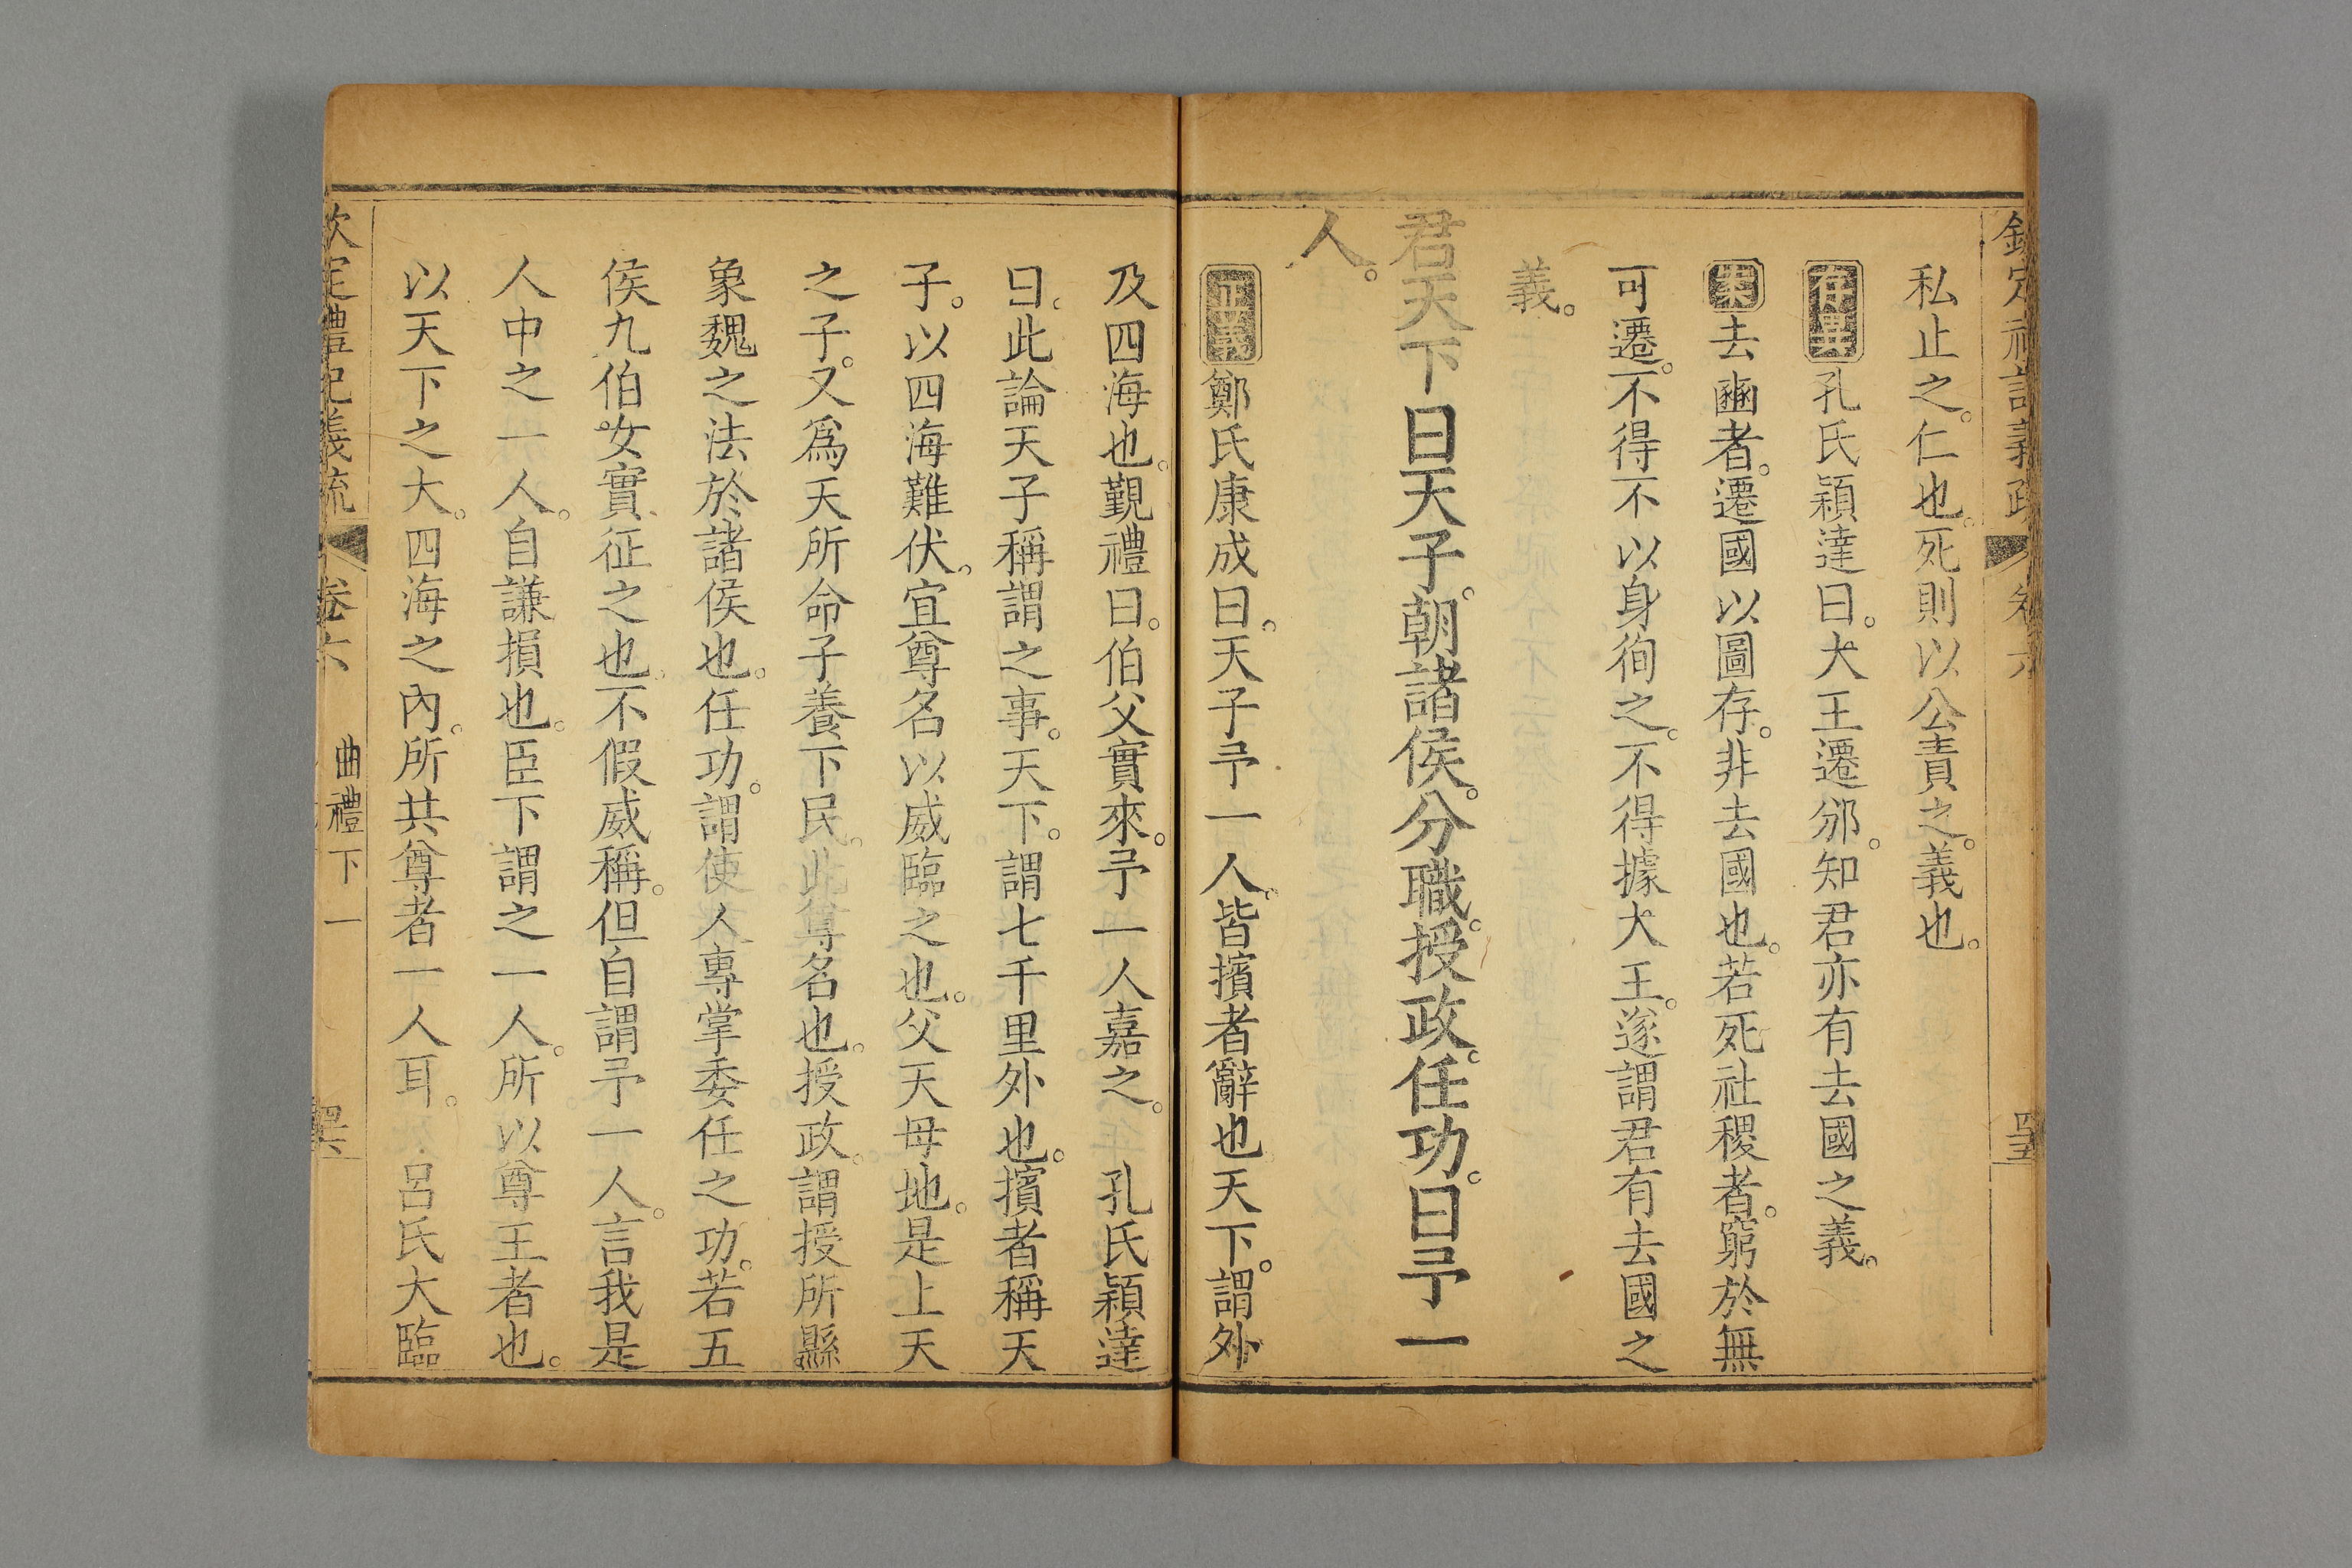 私止之。仁也。死則以公責之。義也。
存異孔氏穎達曰。大王遷邠。知君亦有去國之義。
案去豳者。遷國以圖存。非去國也。若死社稷者。窮於無
可遷。不得不以身徇之。不得據大王。遂謂君有去國之
義。
君天下曰天子。朝諸侯。分職。授政。任功。曰予一
人。
正義鄭氏康成曰。天子予一人。皆擯者辭也天下。謂外
及四海也。覲禮曰。伯父實來。予一人嘉之。 孔氏穎達
曰。此論天子稱謂之事。天下。謂七千里外也。擯者稱天
子。以四海難伏。宜尊名以威臨之也。父天母地。是上天
之子。又爲天所命子養下民。此尊名也。授政。謂授所縣
象魏之法於諸侯也。任功。謂使人專掌委任之功。若五
侯九伯。女實征之也。不假威稱。但自謂予一人。言我是
人中之一人。自謙損也。臣下謂之一人。所以尊王者也。
以天下之大。四海之內。所共尊者一人耳。 呂氏大臨
欽定禮記義疏 卷六 曲禮下一